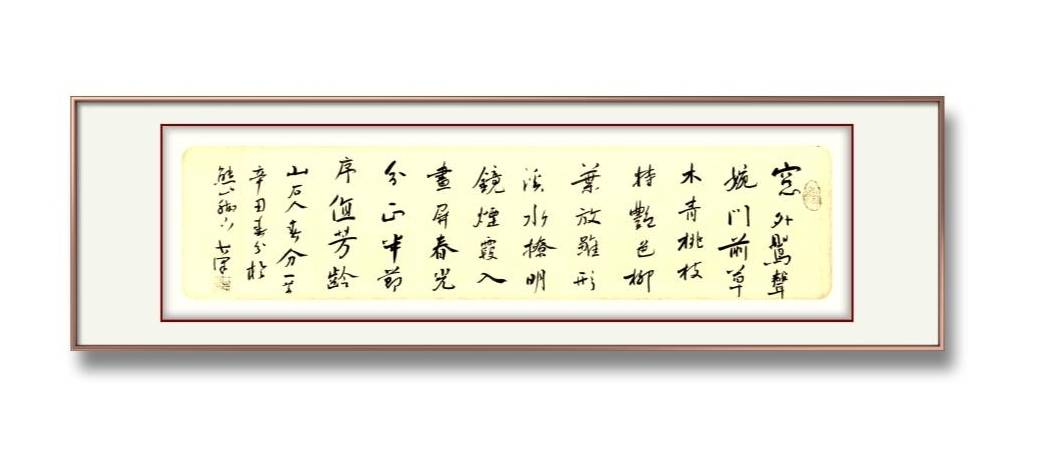 窓外鶯聲
婉門前草
木青桃枝
特艷色柳
葉放雛形
溪水撩明
鏡煙霞入
畫屏春光
分正半節
序值芳齡
山石人春分一首
辛丑春分於
熊